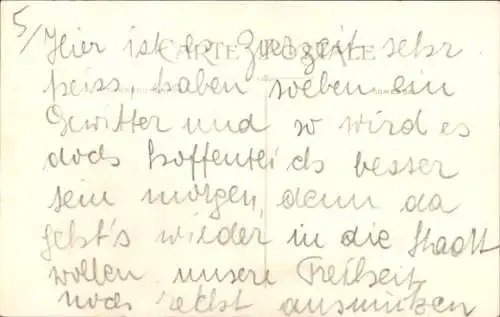 5/
Hier ist es zur Zeit sehr
CARTE POSTALE
heiss, haben soeben ein
Gewitter und so wird es
doch hoffentlich besser
sein morgen, denn da
geht's wieder in die Stadt
wollen unsere Freiheit
noch recht ausnützen